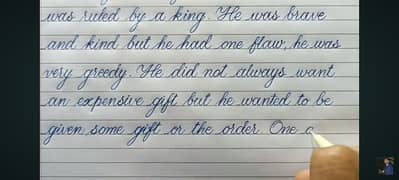 was ruled by a king. He was brave
and kind but he had one flaw, he was
very greedy. He did not always want
an expensive gift but he wanted to be
given some gift or the order. One